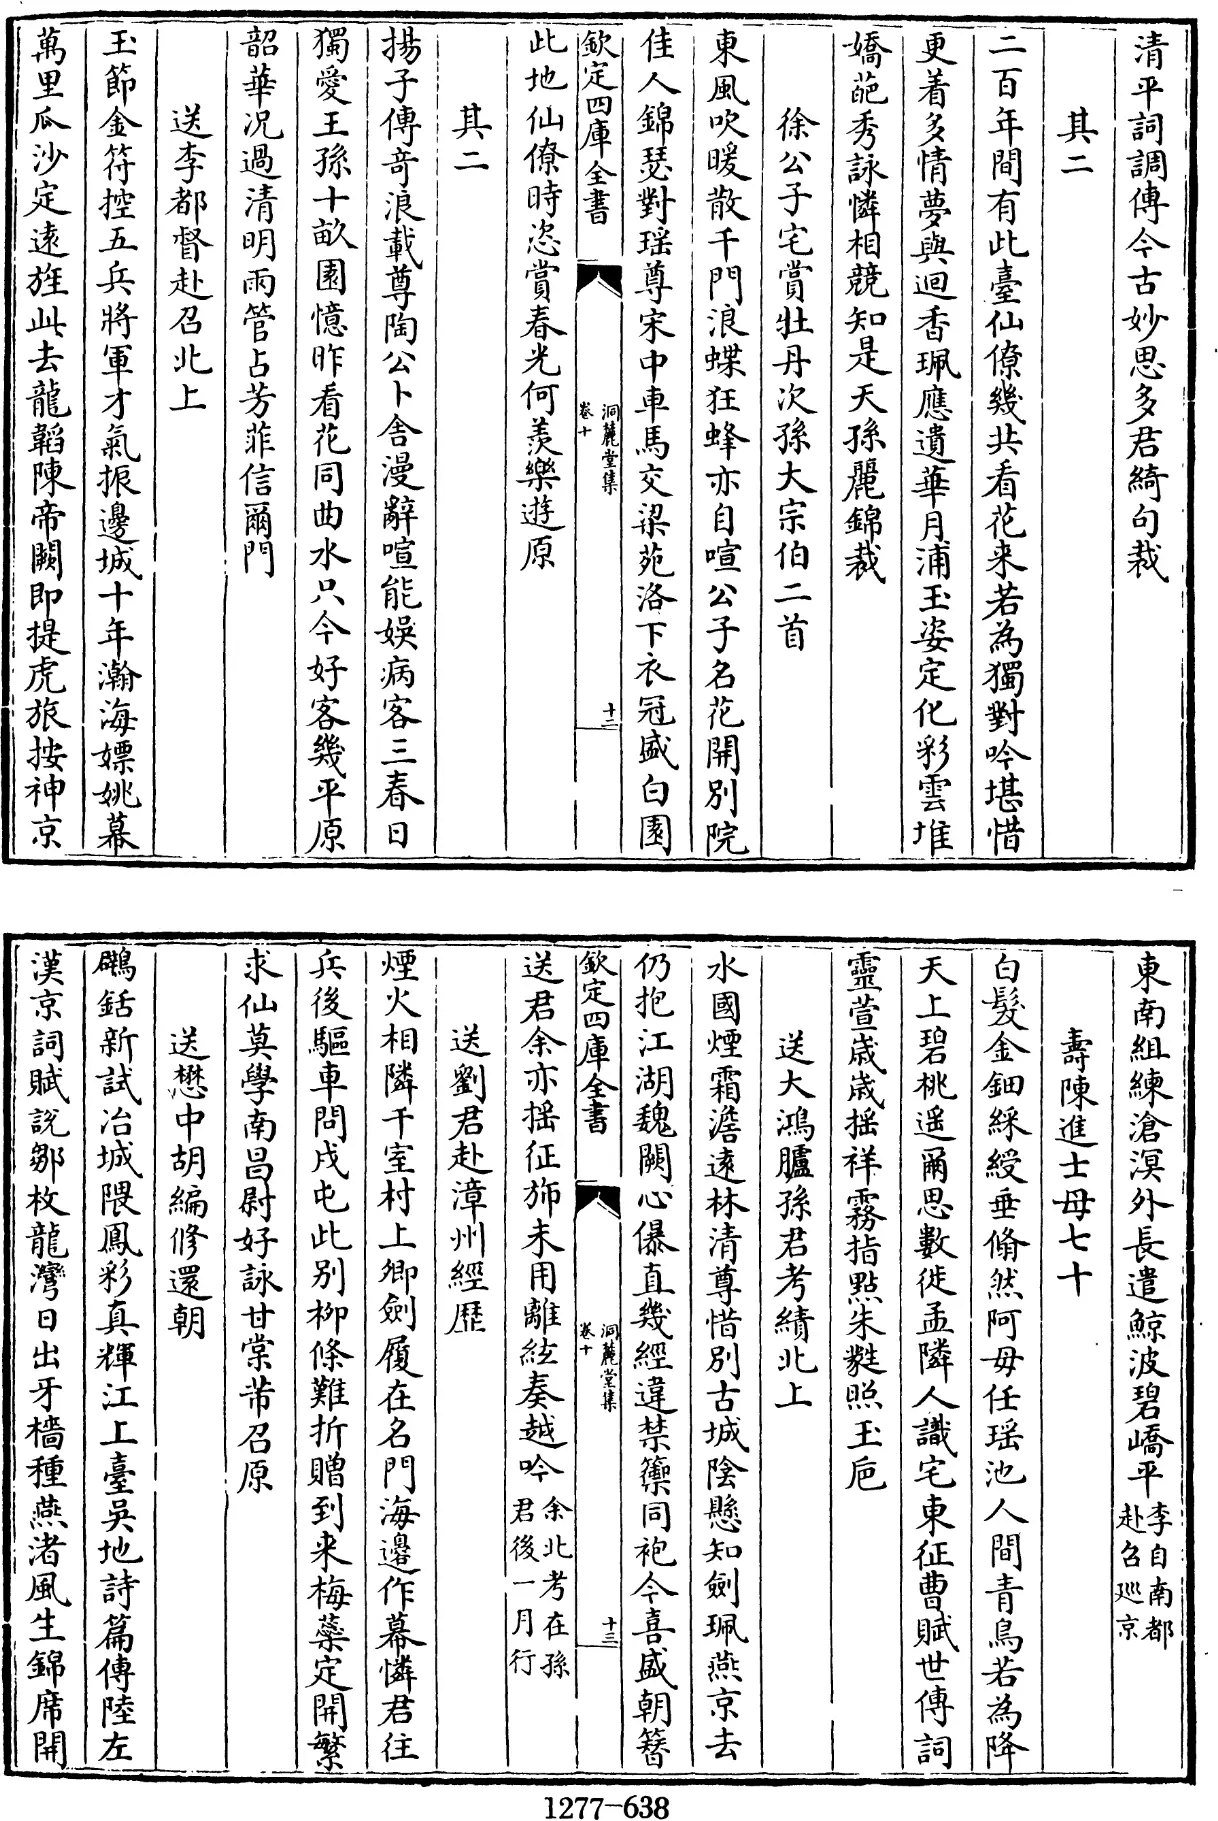 清平詞調傳今古妙思多君綺句裁
其二
二百年間有此臺仙僚幾共看花来若為獨對吟堪惜
更着多情夢與迴香珮應遺華月浦玉姿定化彩雲堆
嬌葩秀詠憐相競知是天孫麗錦裁
徐公子宅賞牡丹次孫大宗伯二首
東風吹暖散千門浪蝶狂蜂亦自喧公子名花開別院
佳人錦瑟對瑶尊宋中車馬交梁苑洛下衣冠盛白園
欽定四庫全書
洞麓堂集
卷十
十二
此地仙僚時恣賞春光何羨樂遊原
其二
揚子傳奇浪載尊陶公卜舍漫辭喧能娱病客三春日
獨愛王孫十畝園憶昨看花同曲水只今好客幾平原
韶華况過清明雨管占芳菲信爾門
送李都督赴召北上
玉節金符控五兵將軍才氣振邊城十年瀚海嫖姚幕
萬里瓜沙定遠旌此去龍韜陳帝闕即提虎旅按神京
東南組練滄溟外長遣鯨波碧嶠平李自南都
赴召巡京
壽陳進士母七十
白髮金鈿綵綬垂翛然阿母任瑶池人間青鳥若為降
天上碧桃遥爾思數徙孟隣人識宅東征曹賦世傳詞
靈萱歲歲揺祥霧指點朱甤照玉巵
送大鴻臚孫君考績北上
水國煙霜澹遠林清尊惜別古城陰懸知劍珮燕京去
仍抱江湖魏闕心儤直幾經違禁籞同袍今喜盛朝簪
欽定四庫全書
洞麓堂集
卷十
十三
送君余亦揺征斾未用離絃奏越吟余北考在孫
君後一月行
送劉君赴漳州經歷
煙火相隣千室村上卿劍履在名門海邊作幕憐君往
兵後驅車問戍屯此別柳條難折贈到来梅蘂定開繁
求仙莫學南昌尉好詠甘棠芾召原
送懋中胡編修還朝
鸊銛新試冶城隈鳳彩真輝江上臺吳地詩篇傳陸左
漢京詞賦說鄒枚龍灣日出牙檣種燕渚風生錦席開
1277-638